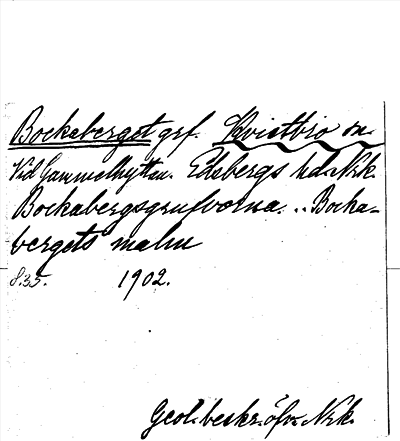 Bockaberget grf. Kvistbro sn.
Vid Gammelhyttan. Edsbergs hd. Nkk.
Bockabergsgrufvorna. .. Bocka-
bergets malm
8.35. 1902.
Geol. beskr. öfv. Nrk.